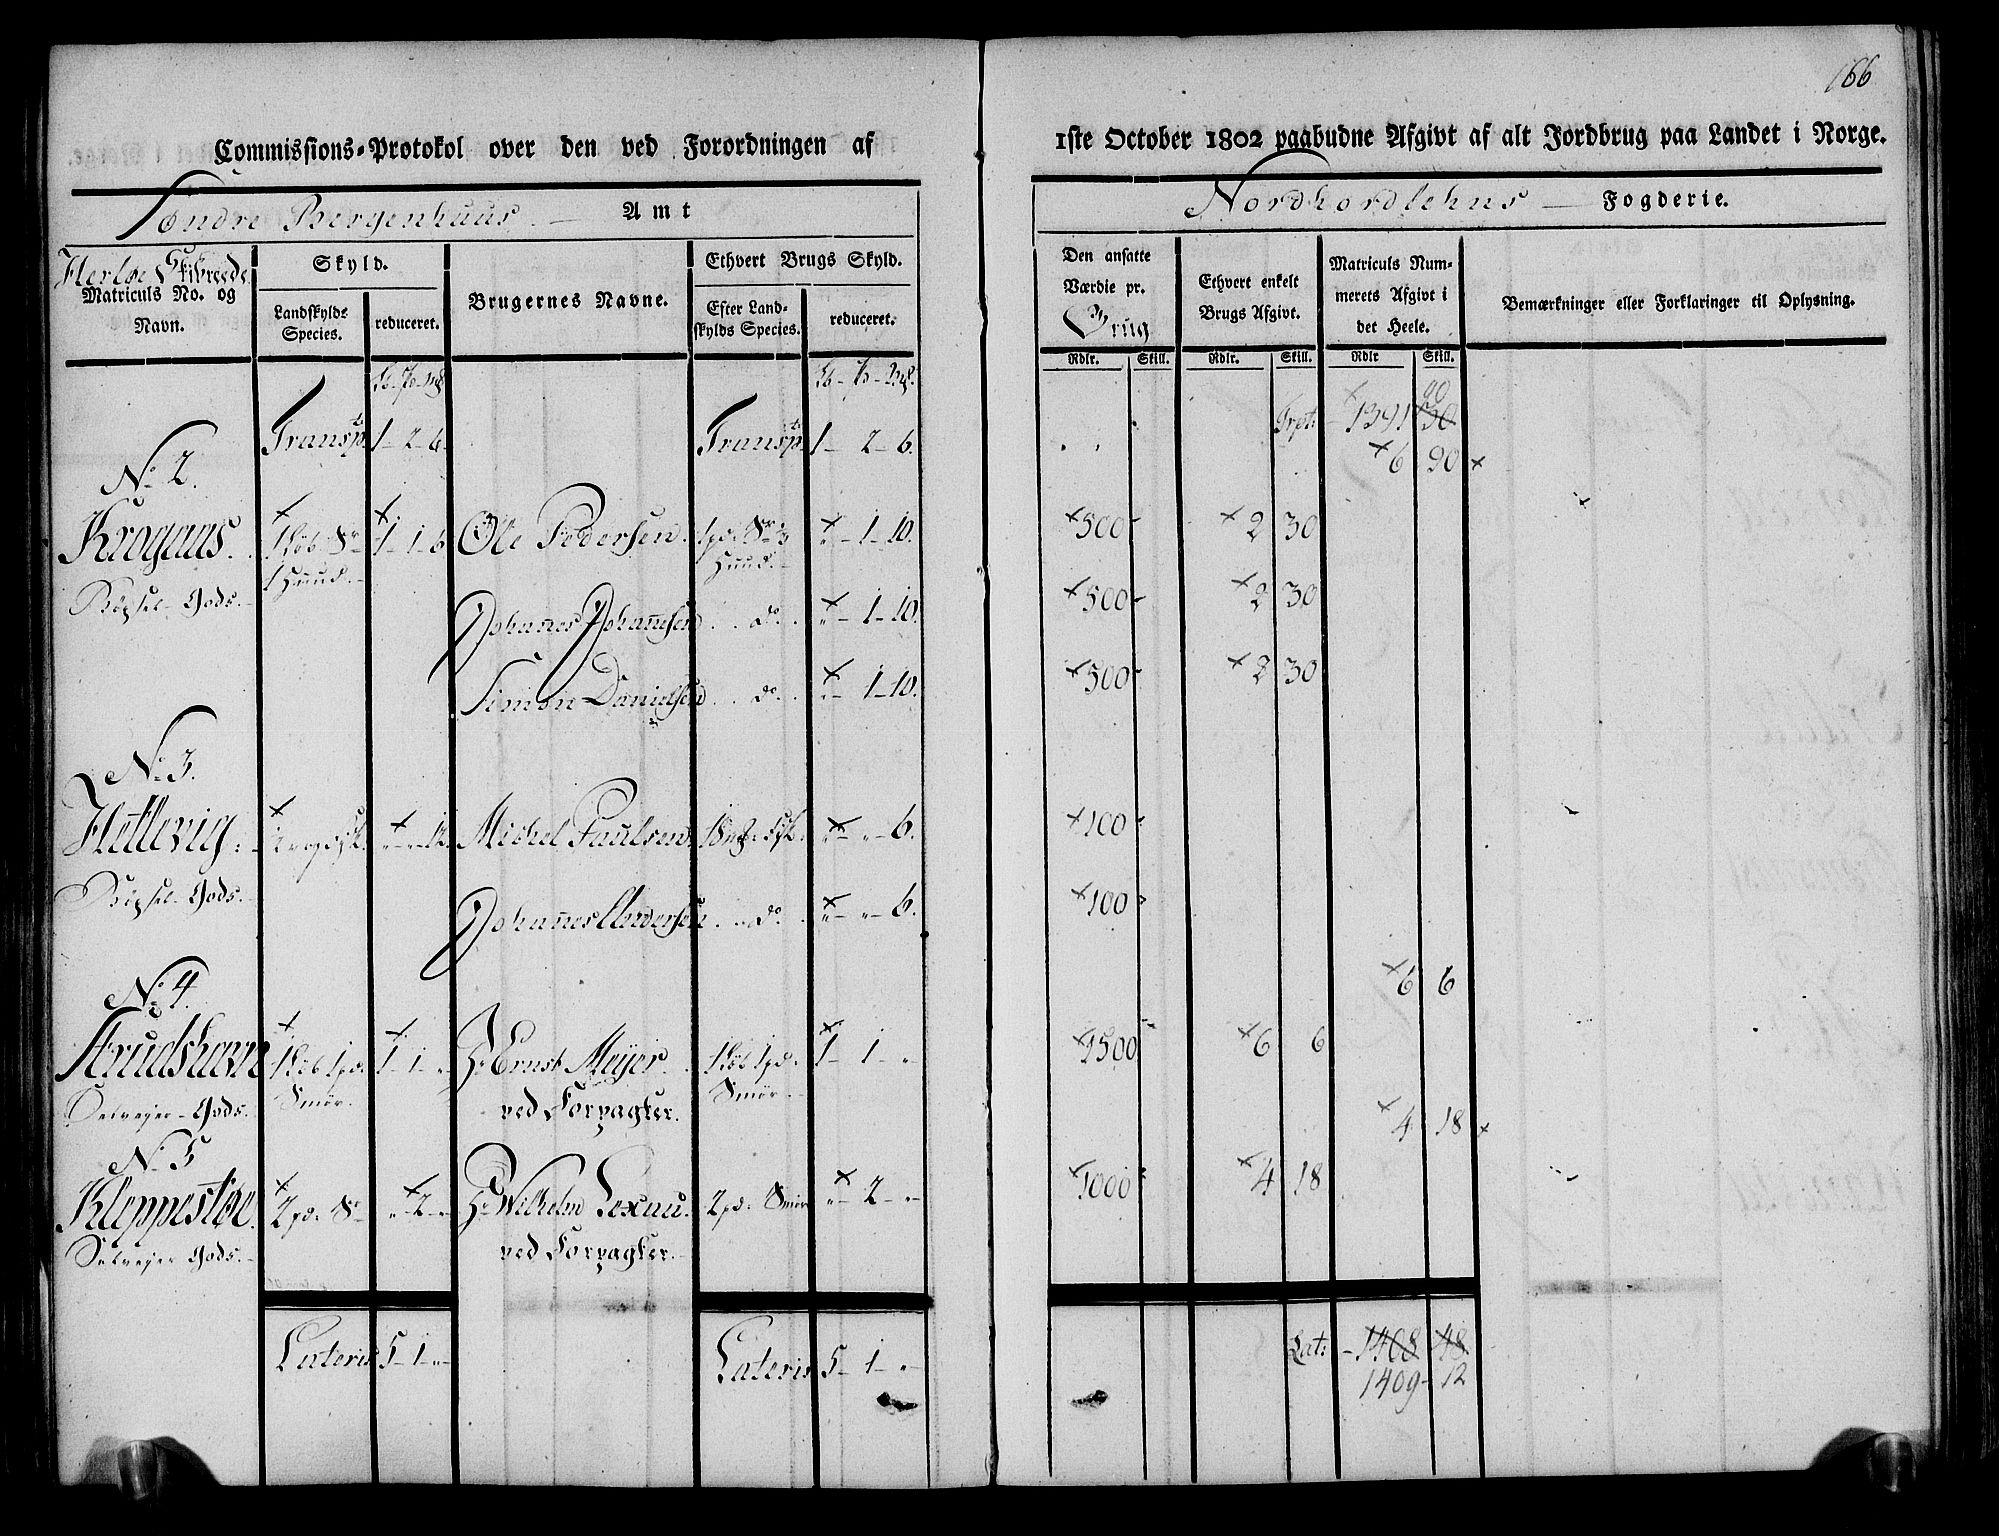 166
Commissions-Protokol over den ved Forordningen af 1ste October 1802 paabudne Afgivt af alt Jordbrug paa Landet i Norge.
Søndre Bergenhuus Amt
Nordhordlehns Fogderie.
Herløe Skibreede
Matriculs No. og Navn.
Skyld.
Landskylds Species.
reduceret.
Brugernes Navne.
Ethvert Brugs Skyld.
Efter Landskylds Species.
reduceret.
Den ansatte Værdie pr. Brug
Ethvert enkelt Brugs Afgivt.
Matriculs Nummerets Afgivt i det Heele.
Bemærkninger eller Forklaringer til Oplysning.
Rdlr. Skill. Rdlr. Skill. Rdlr Skill.
Transpt. 1-2-6. Transpt. 1-2-6. Trpt: 1391 90
No. 2. 6 90
Krogaas. 1-1-6 Ole Pedersen. -1-10. 500 2 30
Gods.
Johannes Johannesen do. -1-10. 500 2 30
Simon Danielsen do. -1-10. 500 2 30
No. 3.
Hetlevig. Michel Paulsen. 6. 100
Gods.
Johannes Andersen do. 6. 100
6 6
No. 4.
1 Løb 1 pd: Smør. 1-1- Hr Ernst Meyer ved Forpagter. 1 Løb 1 pd: Smør. 1-1- 1500 6 6
Selveyer-Gods.
4 18
No. 5
Kleppestøe. 2 pd: Sr -2- Hr Wilhelm Lexau. ved Forpagter. 2 pd: Smør -2- 1000 4 18
Selveyer Gods.
Lateris 5-1- Lateris 5-1- Lat: 1408 48
1409-12